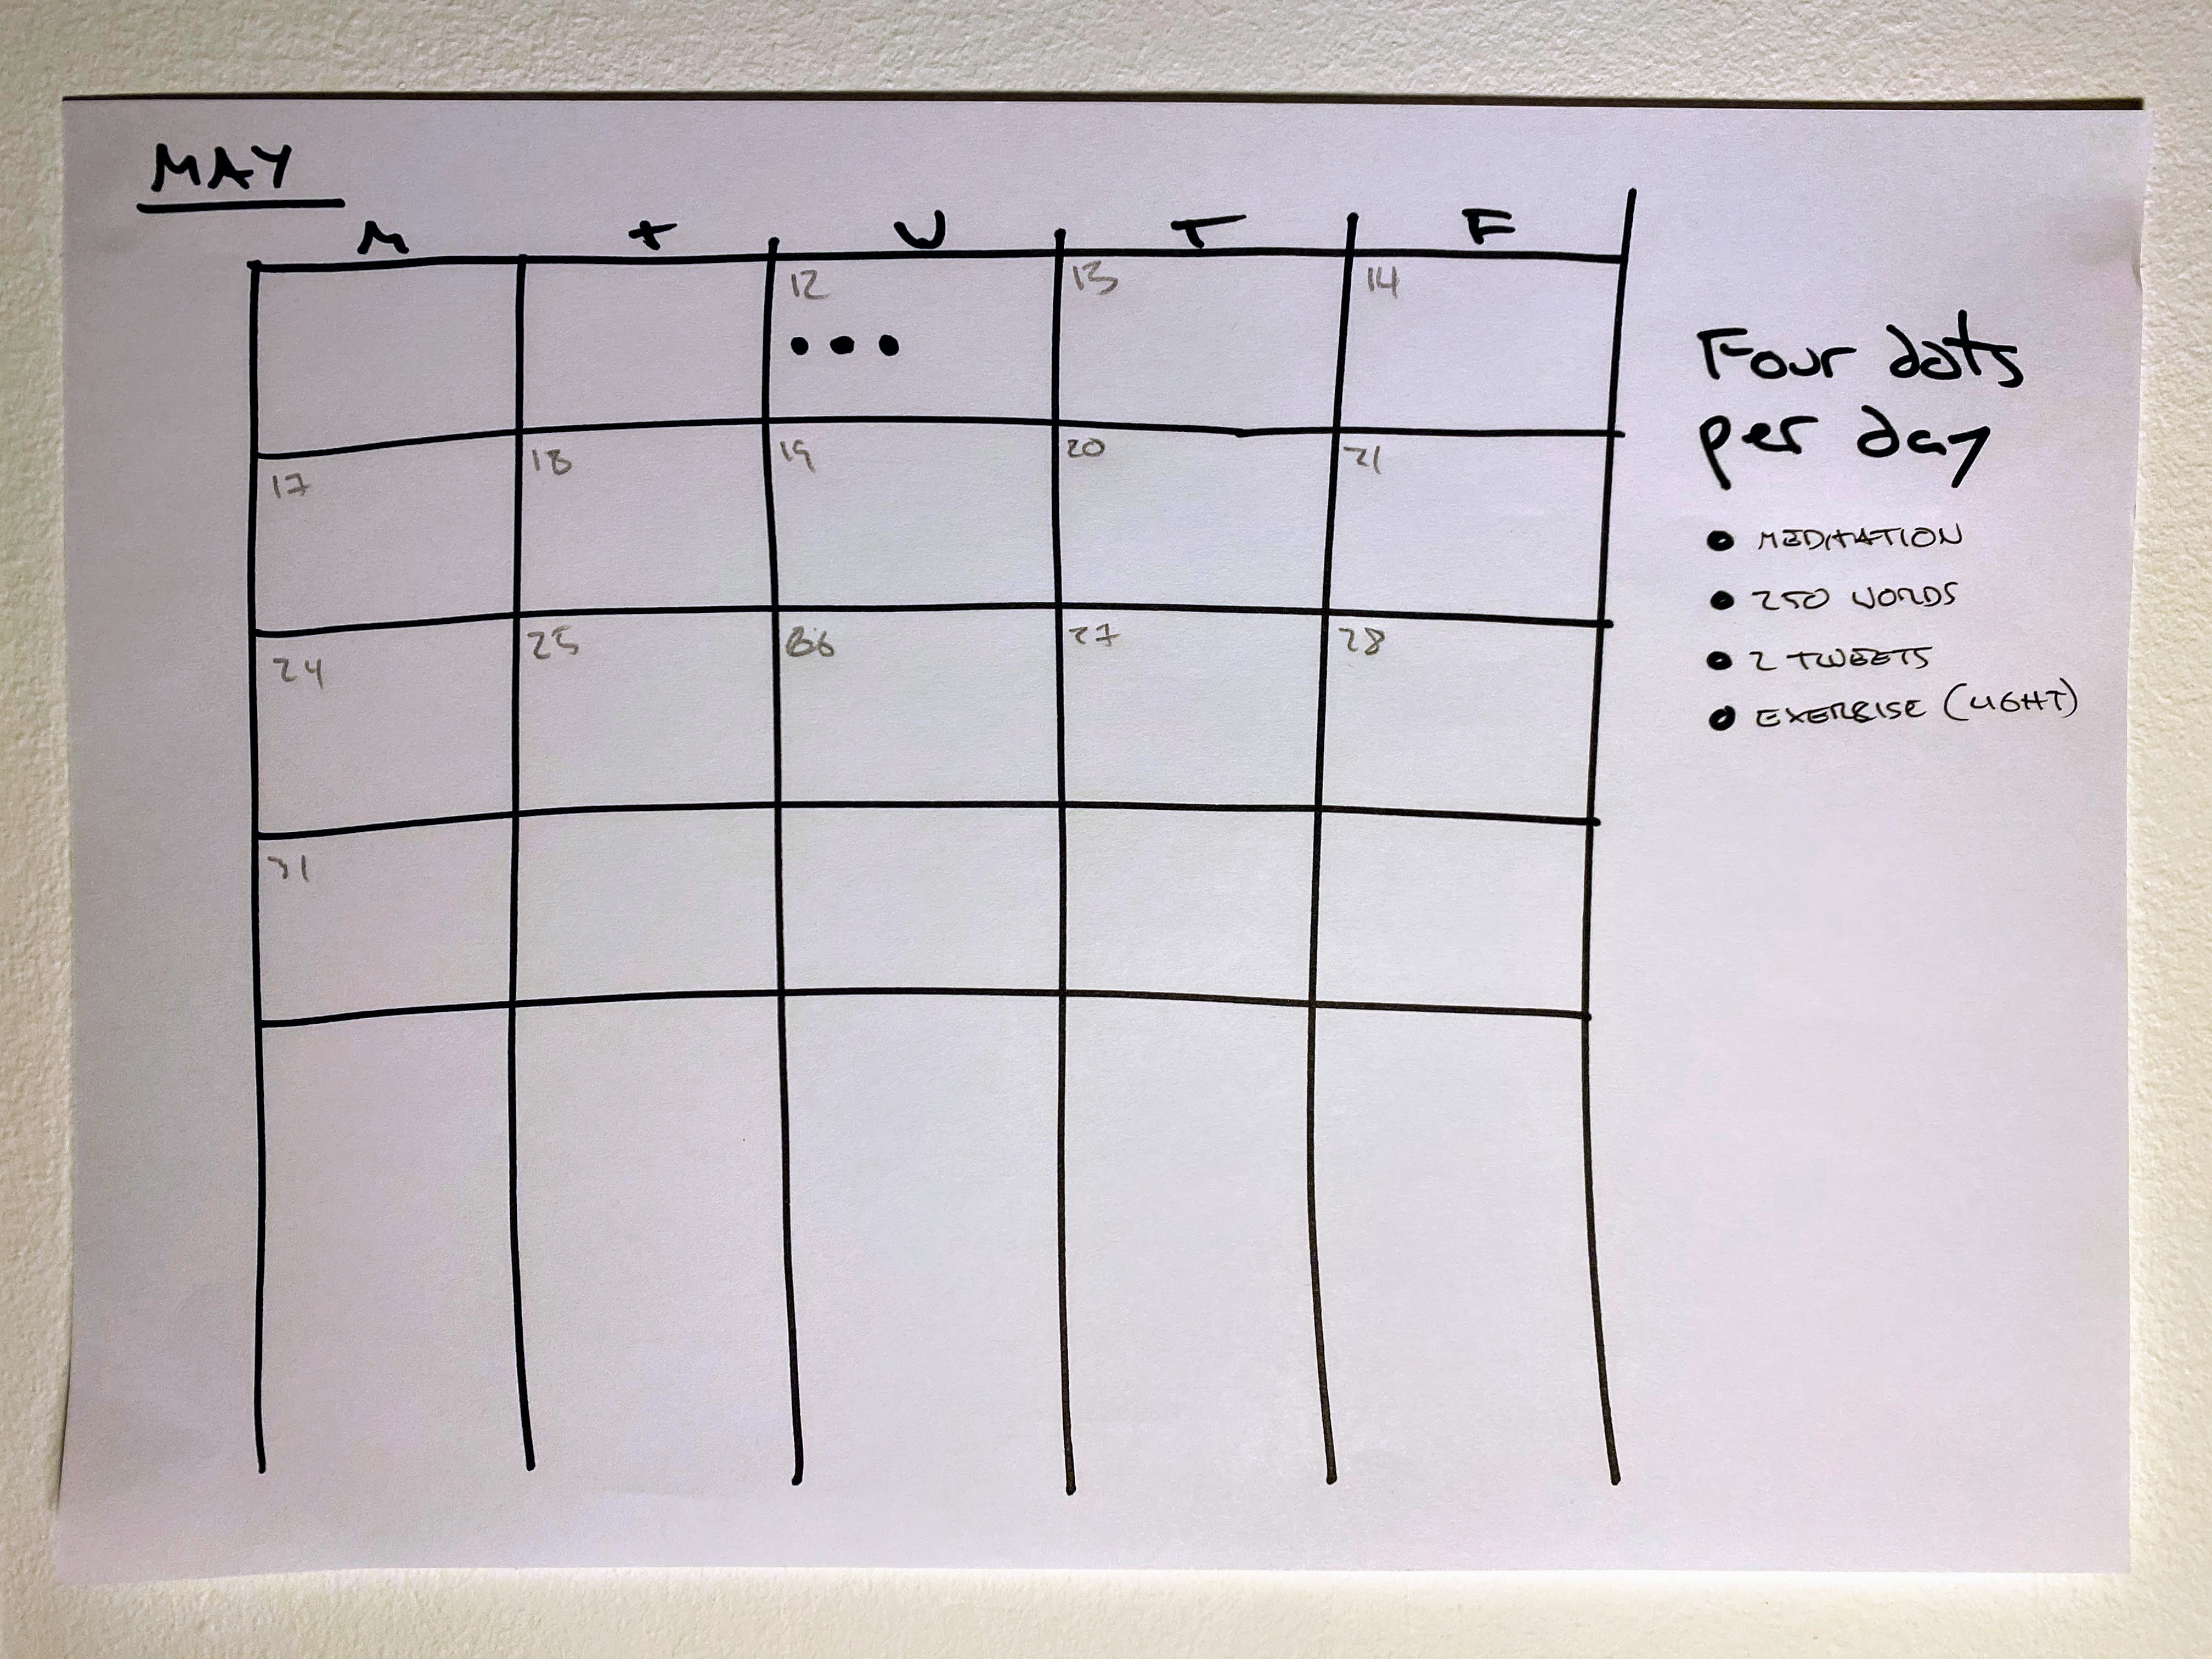 MAY
M T W T F
12 13 14
17 18 19 20 21
24 25 26 27 28
31
Four dots
per day
• MEDITATION
• 250 WORDS
• 2 TWEETS
• EXERCISE (LIGHT)